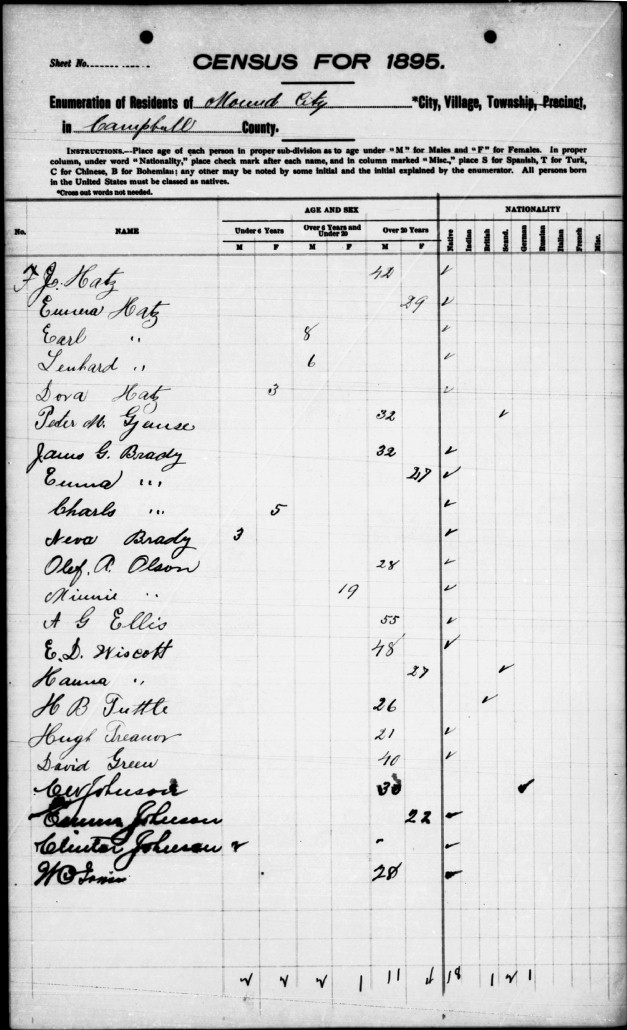 Sheet No.
CENSUS FOR 1895.
Enumeration of Residents of Mound City *City, Village, Township, Precinct,
in Campbell County.
INSTRUCTIONS.—Place age of each person in proper sub-division as to age under "M" for Males and "F" for Females. In proper
column, under word "Nationality," place check mark after each name, and in column marked "Misc.," place S for Spanish, T for Turk,
C for Chinese, B for Bohemian; any other may be noted by some initial and the initial explained by the enumerator. All persons born
in the United States must be classed as natives.
*Cross out words not needed.
AGE AND SEX NATIONALITY
No. NAME Under 6 Years Over 6 Years and Under 20 Over 20 Years Native Indian British Scand. German Russian Italian French Misc.
M F M F M F
F J. Hatz 42 ✓
Emma Hatz 29 ✓
Earl " 8 ✓
Lenhard " 6 ✓
Dora Hatz 3 ✓
Peter M. 32 ✓
James G. Brady 32 ✓
Emma " 27 ✓
Charls " 5 ✓
Neva Brady 3 ✓
Olef. A. Olson 28 ✓
Minnie " 19 ✓
A G Ellis 55 ✓
E. D. Wiscott 48 ✓
Hanna " 27 ✓
H B Tuttle 26 ✓
Hugh Treanor 21 ✓
David Green 40 ✓
Johnson ✓
Emma Johnson 22 ✓
Clinton Johnson 2 ✓
28 ✓
2 2 2 1 11 4 18 1 2 1